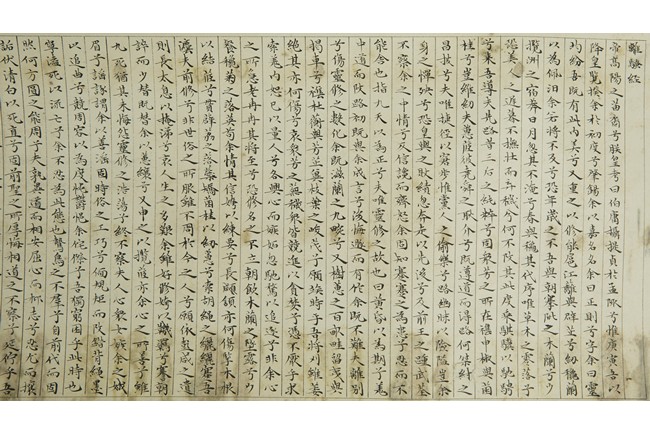 離騷經
帝高陽之苗裔兮朕皇考曰伯庸攝提貞于孟陬兮惟庚寅吾以
降皇覽揆余於初度兮肇錫余以嘉名名余曰正則兮字余曰靈
均紛吾既有此內美兮又重之以脩能扈江離與辟芷兮紉秋蘭
以為佩汩余若將不及兮恐年歲之不吾與朝搴阰之木蘭兮夕
攬洲之宿莽日月忽其不淹兮春與秋其代序惟草木之零落兮
恐美人之遲暮不撫壯而棄穢兮何不改其此度乘騏驥以馳騁
兮來吾導夫先路昔三后之純粹兮固眾芳之所在雜申椒與菌
桂兮豈維紉夫蕙茝彼堯舜之耿介兮既遵道而得路何桀紂之
昌披兮夫唯捷徑以窘步惟黨人之偷樂兮路幽昧以險隘豈余
身之憚殃兮恐皇輿之敗績忽奔走以先後兮及前王之踵武荃
不察余之中情兮反信讒而齌怒余固知謇謇之為患兮忍而不
能舍也指九天以為正兮夫唯靈脩之故也曰黃昏以為期兮羌
中道而改路初既與余成言兮後悔遁而有佗余既不難夫離別
兮傷靈脩之數化余既滋蘭之九畹兮又樹蕙之百畝畦留夷與
揭車兮雜杜衡與芳芷冀枝葉之峻茂兮願竢時乎吾將刈雖萎
絕其亦何傷兮哀眾芳之蕪穢眾皆競進以貪婪兮憑不厭乎求
索羌內恕己以量人兮各興心而嫉妒忽馳騖以追逐兮非余心
之所急老冉冉其將至兮恐脩名之不立朝飲木蘭之墜露兮夕
餐秋菊之落英苟余情其信姱以練要兮長顑頷亦何傷擥木根
以結茝兮貫薜荔之落蕊矯菌桂以紉蕙兮索胡繩之纚纚謇吾
法夫前脩兮非世俗之所服雖不周於今之人兮願依彭咸之遺
則長太息以掩涕兮哀人生之多艱余雖好脩姱以鞿羈兮謇朝
誶而夕替既替余以蕙纕兮又申之以攬茝亦余心之所善兮雖
九死猶其未悔怨靈脩之浩蕩兮終不察夫人心眾女嫉余之蛾
眉兮謠諑謂余以善淫固時俗之工巧兮偭規矩而改錯背繩墨
以追曲兮競周容以為度忳鬱邑余侘傺兮吾獨窮困乎此時也
寧溘死以流亡兮余不忍為此態也鷙鳥之不羣兮自前代而固
然何方圜之能周兮夫孰異道而相安屈心而抑志兮忍尤而攘
詬伏清白以死直兮固前聖之所厚悔相道之不察兮延佇乎吾